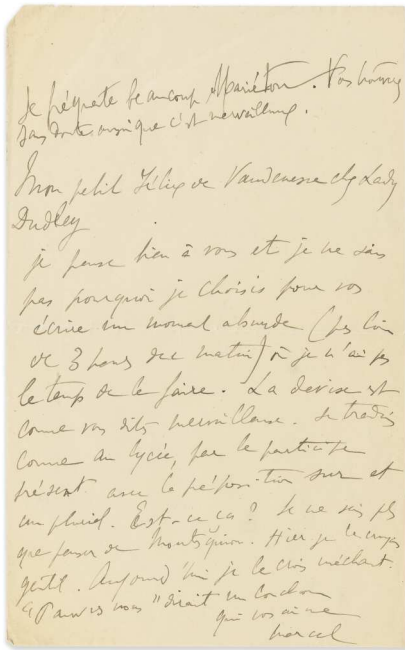 Je fréquente beaucoup Mariéton. Vous trouverez
sans doute aussi que c'est merveilleux.
Mon petit Félix de Vandenesse chez Lady
Dudley
je pense bien à vous et je ne sais
pas pourquoi je choisis pour vous
écrire un moment absurde (pas loin
de 3 heures du matin) où je n'ai pas
le temps de le faire. La devise est
comme vous dites merveilleuse. Je traduis
comme au lycée, par le participe
présent avec la préposition sur et
un pluriel. Est-ce ça? Je ne sais plus
que penser de Montesquiou. Hier je le croyais
gentil. Aujourd'hui je le crois méchant.
"Pauvres nous" dirait un Cochon
qui vous aime
Marcel